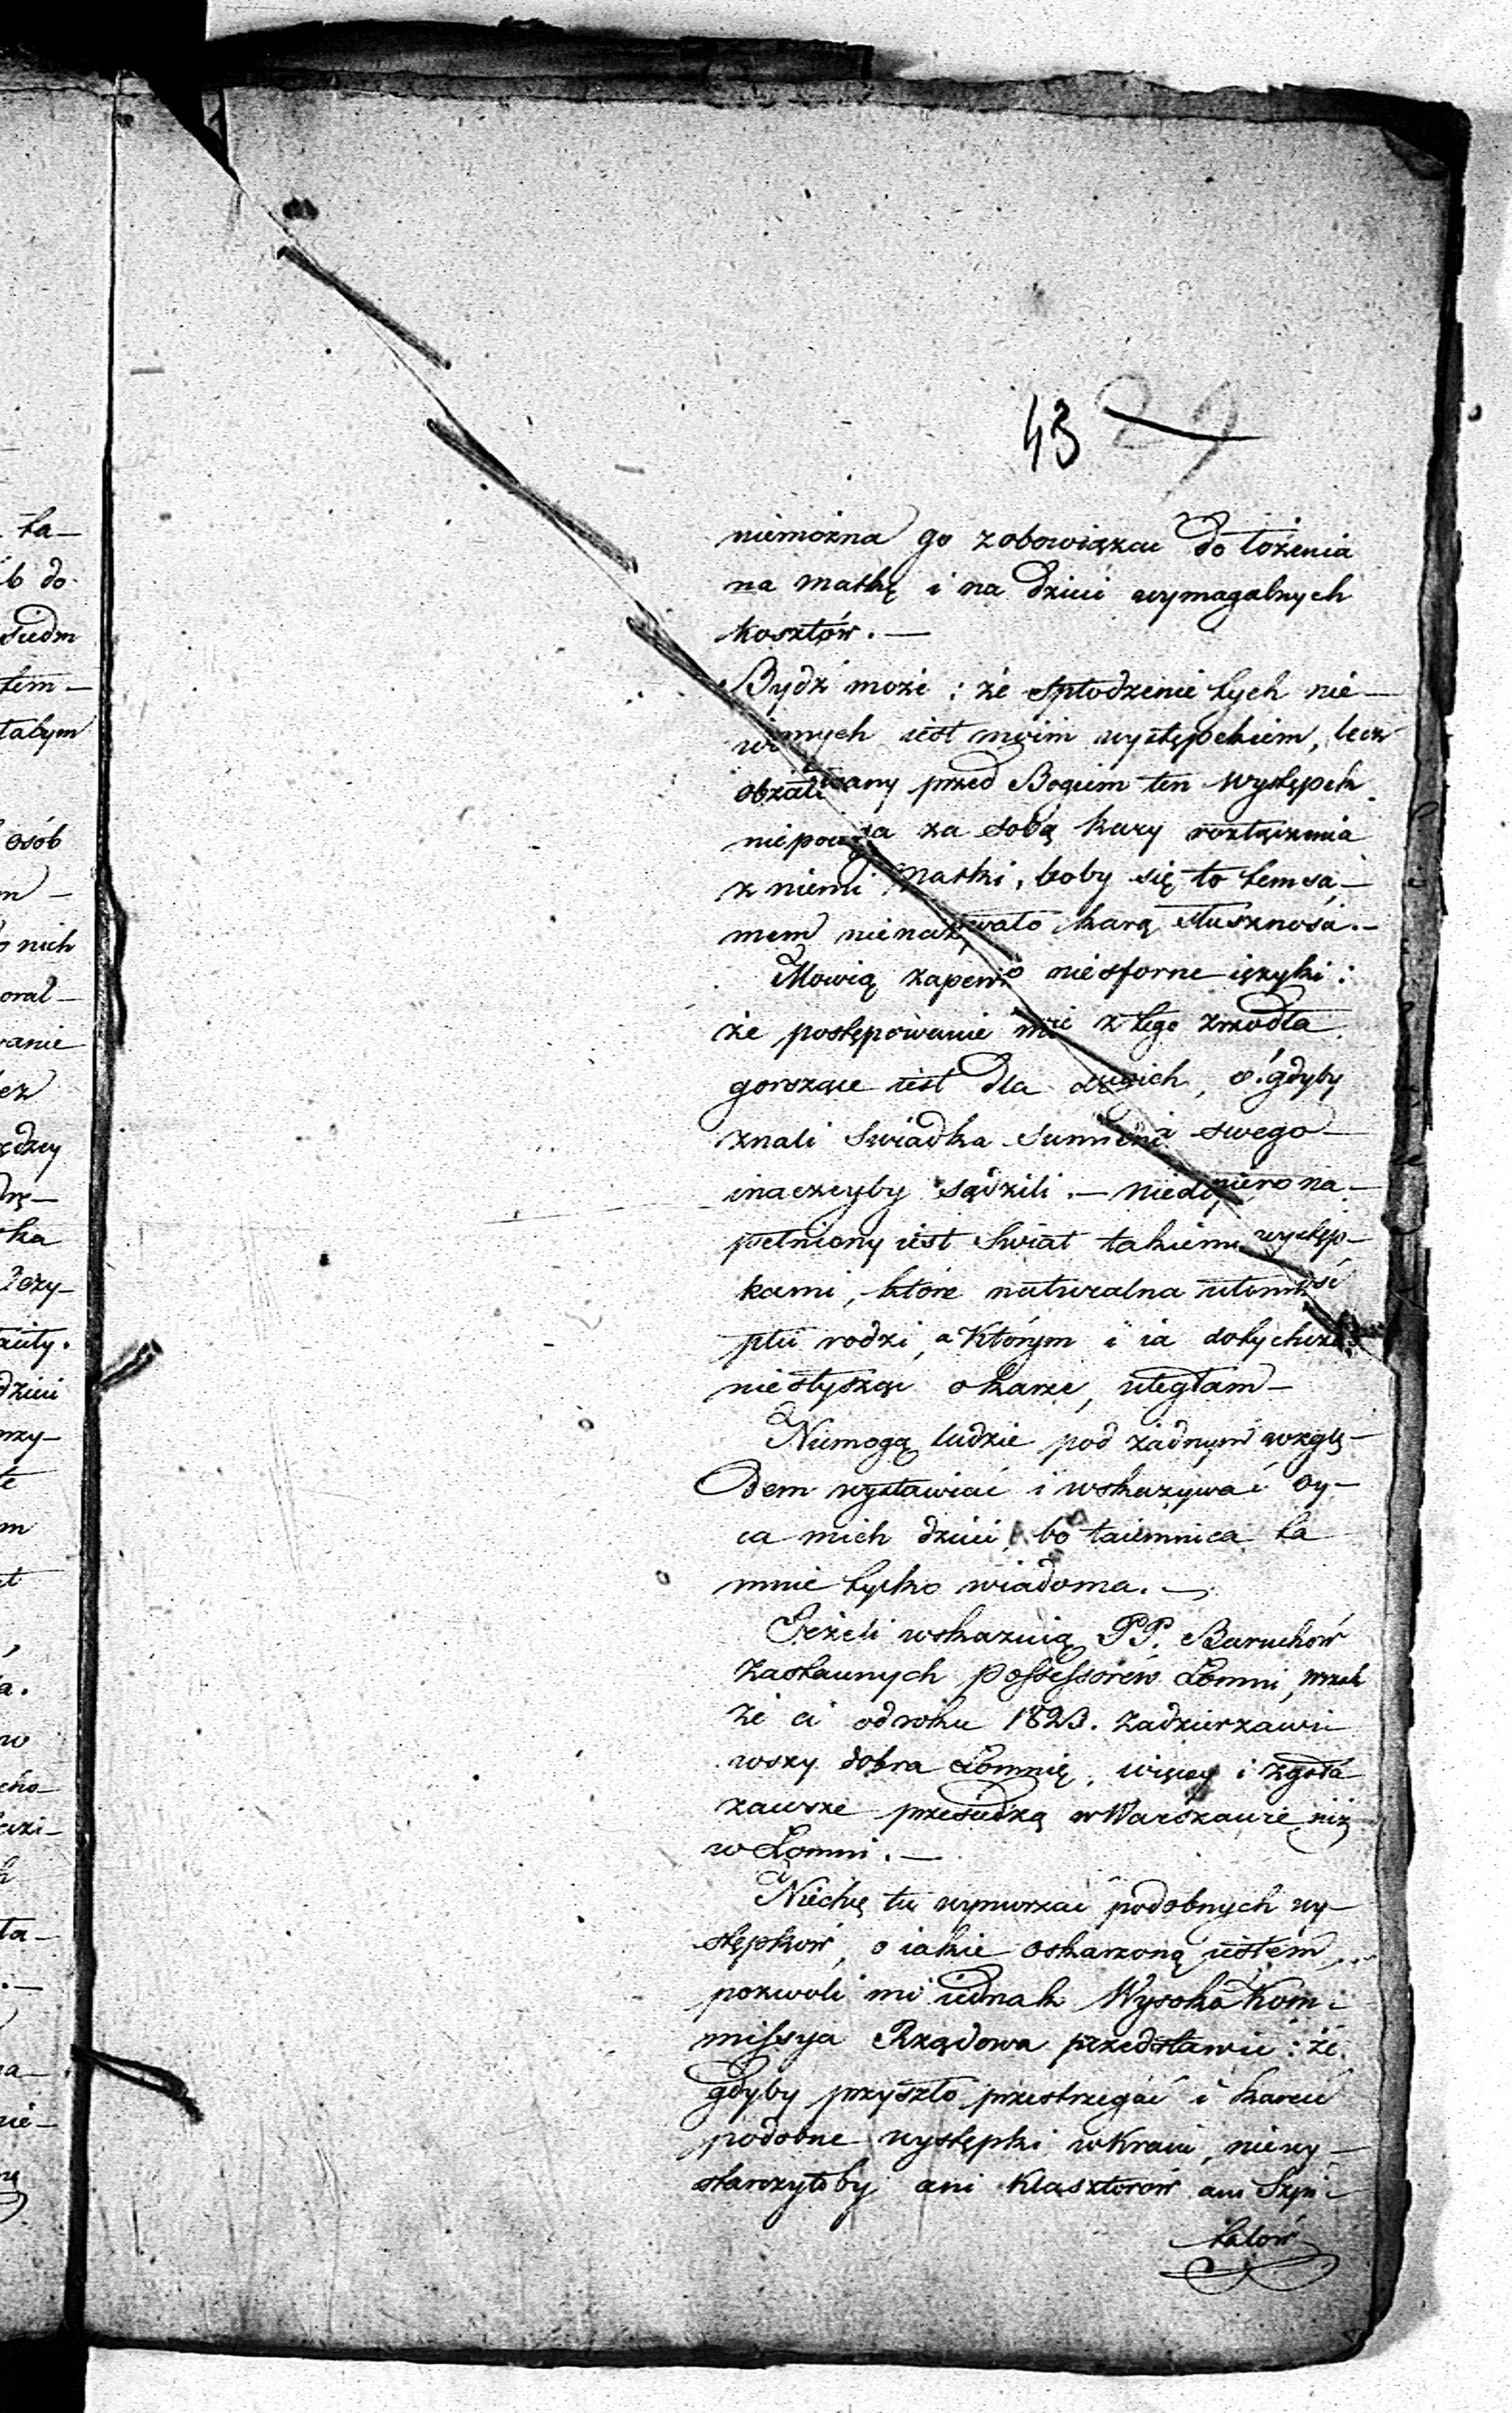 43 29
niemożna go zobowiązać do łożenia
na matkę i na dzieci wymagalnych
kosztów. —
Bydź może: że spłodzenie tych nie-
winnych iest moim występkiem, lecz
obżałowany przed Bogiem ten występek
niepociąga za sobą kary rozłączenia
z niemi Matki, boby się to tem sa-
mem nienazywało karą słuszności. —
Mowią zapewno niesforne ięzyki:
że postępowanie moie z tego zrzodła
gorszące iest dla drugich, o! gdyby
znali Swiadka Sumnienia swego
inaczeyby sądzili. — niedopiero na-
pełniony iest Swiat takiemi występ-
kami, które naturalna ułomność
płci rodzi, a którym i ia dotychczas
niesłysząc o karze, uległam —
Niemogą ludzie pod żadnym wzglę-
dem wystawiać i wskazywać oy-
ca mich dzieci, bo taiemnica ta
mnie tylko wiadoma. —
Jeżeli wskazuią PP. Baruchów
Zastawnych Possessorów Łomni, wszak
że ci od roku 1823. zadzierzawi-
wszy dobra Łomnię, więcey i zgoła
zawsze przesiedzą w Warszawie niż
w Łomni. —
Niechcę tu wynurzać podobnych wy-
stępków, o iakie oskarzoną iestem,
pozwoli mi iednak Wysoka Kom-
missya Rządowa przedstawić: że
gdyby przyszło przestrzegać i karcić
podobne występki w kraiu, niewy-
starczyłoby ani Klasztorów ani Szpi-
talów
ta-
do
siedm
tem-
osób
nich
orał-
wanie
ędzy
dzieci
rzy-
ta-